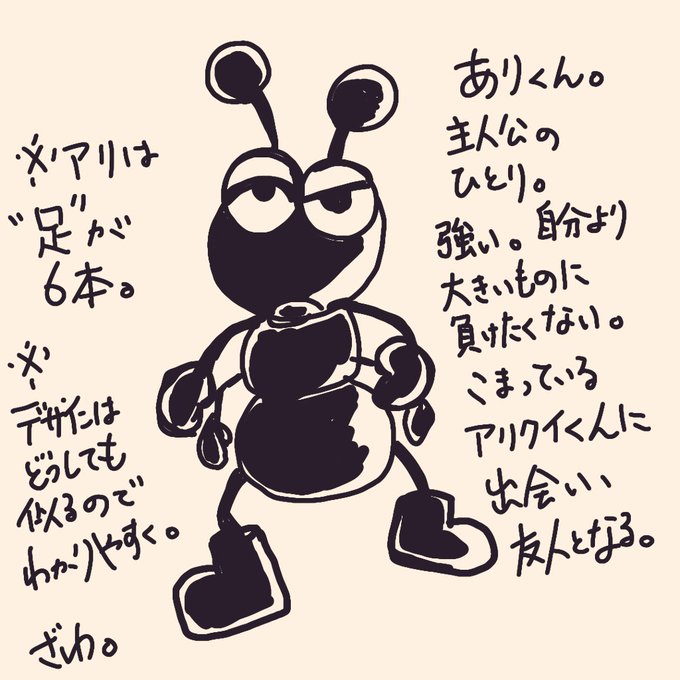 ありくん。
主人公の
ひとり。
強い。自分より
大きいものに
負けたくない。
こまっている
アリクイくんに
出会い、
友人となる。
※アリは
“足”が
6本。
※
デザインは
どうしても
似るので
わかりやすく。
ざわ。